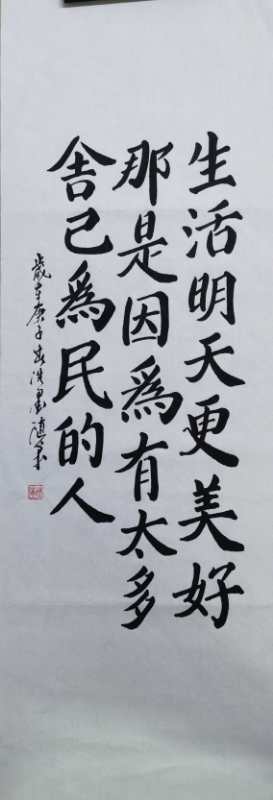 生活明天更美好
那是因為有太多
舍己為民的人
歲在庚子